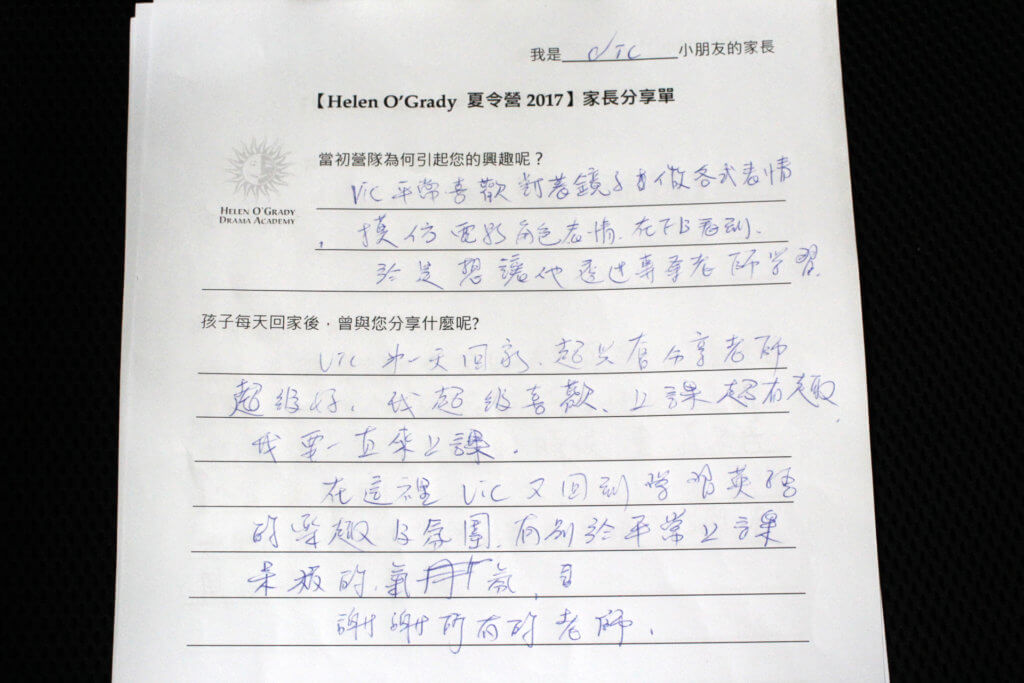 我是 Vic 小朋友的家長
【Helen O'Grady 夏令營 2017】家長分享單
當初營隊為何引起您的興趣呢？
HELEN O'GRADY
DRAMA ACADEMY
Vic 平常喜歡對著鏡子做各式表情
，模仿電影角色表情．在FB看到．
於是想讓他透過專業老師學習
孩子每天回家後，曾與您分享什麼呢?
Vic 第一天回家．起只有分享老師
超級好．我超級喜歡、上課超有趣．
我要一直來上課．
在這裡 Vic 又回到學習英語
的樂趣及氛圍．有別於平常上課
呆板的．氣氛
謝謝所有的老師．